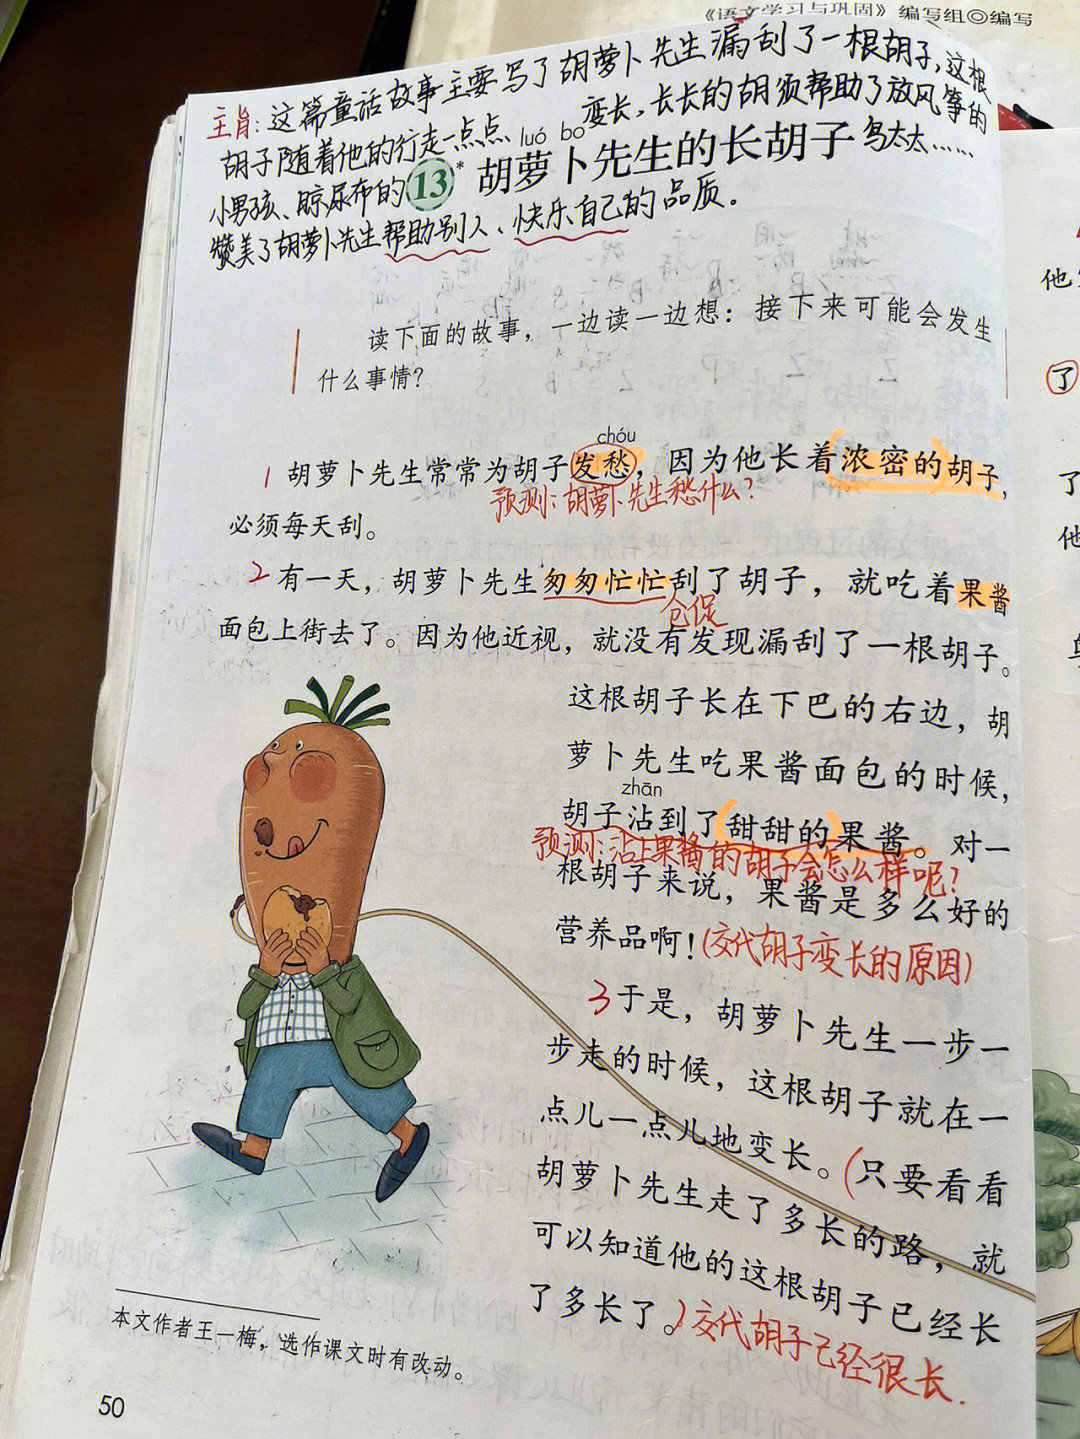 《语文学习与巩固》编写组◎编写
主旨：这篇童话故事主要写了胡萝卜先生漏刮了一根胡子，这根
胡子随着他的行走一点点变长，长长的胡须帮助了放风筝的
小男孩、晾尿布的鸟太太……
赞美了胡萝卜先生帮助别人、快乐自己的品质。
luó bo
13* 胡萝卜先生的长胡子
读下面的故事，一边读一边想：接下来可能会发生
什么事情？
chóu
1 胡萝卜先生常常为胡子发愁，因为他长着浓密的胡子，
预测：胡萝卜先生愁什么？
必须每天刮。
2 有一天，胡萝卜先生匆匆忙忙刮了胡子，就吃着果酱
仓促
面包上街去了。因为他近视，就没有发现漏刮了一根胡子。
这根胡子长在下巴的右边，胡
萝卜先生吃果酱面包的时候，
zhān
胡子沾到了甜甜的果酱。对一
预测：沾上果酱的胡子会怎么样呢？
根胡子来说，果酱是多么好的
营养品啊！（交代胡子变长的原因）
3 于是，胡萝卜先生一步一
步走的时候，这根胡子就在一
点儿一点儿地变长。（只要看看
胡萝卜先生走了多长的路，就
可以知道他的这根胡子已经长
了多长了。）交代胡子已经很长.
本文作者王一梅，选作课文时有改动。
50
他
了
了
他